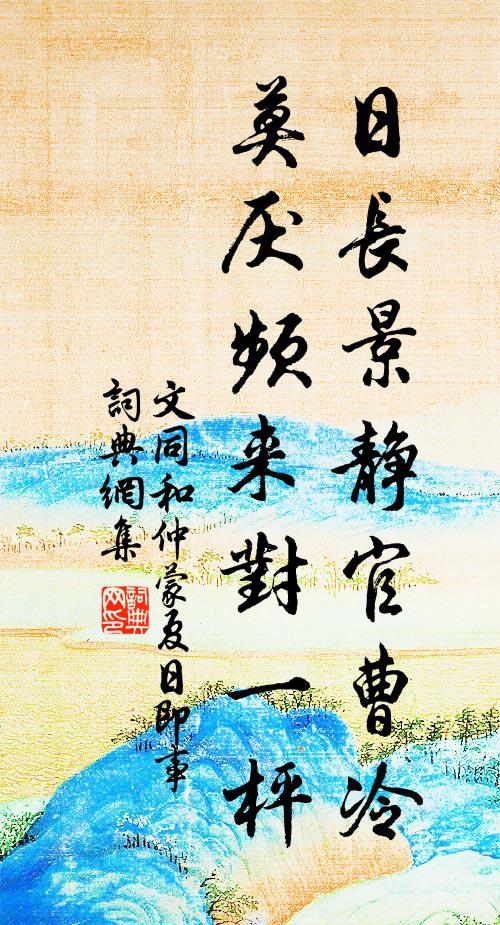 日長景静官曹冷
莫厌頻来對一枰
文同和仲蒙夏日即事
詞典網集
詞典网印